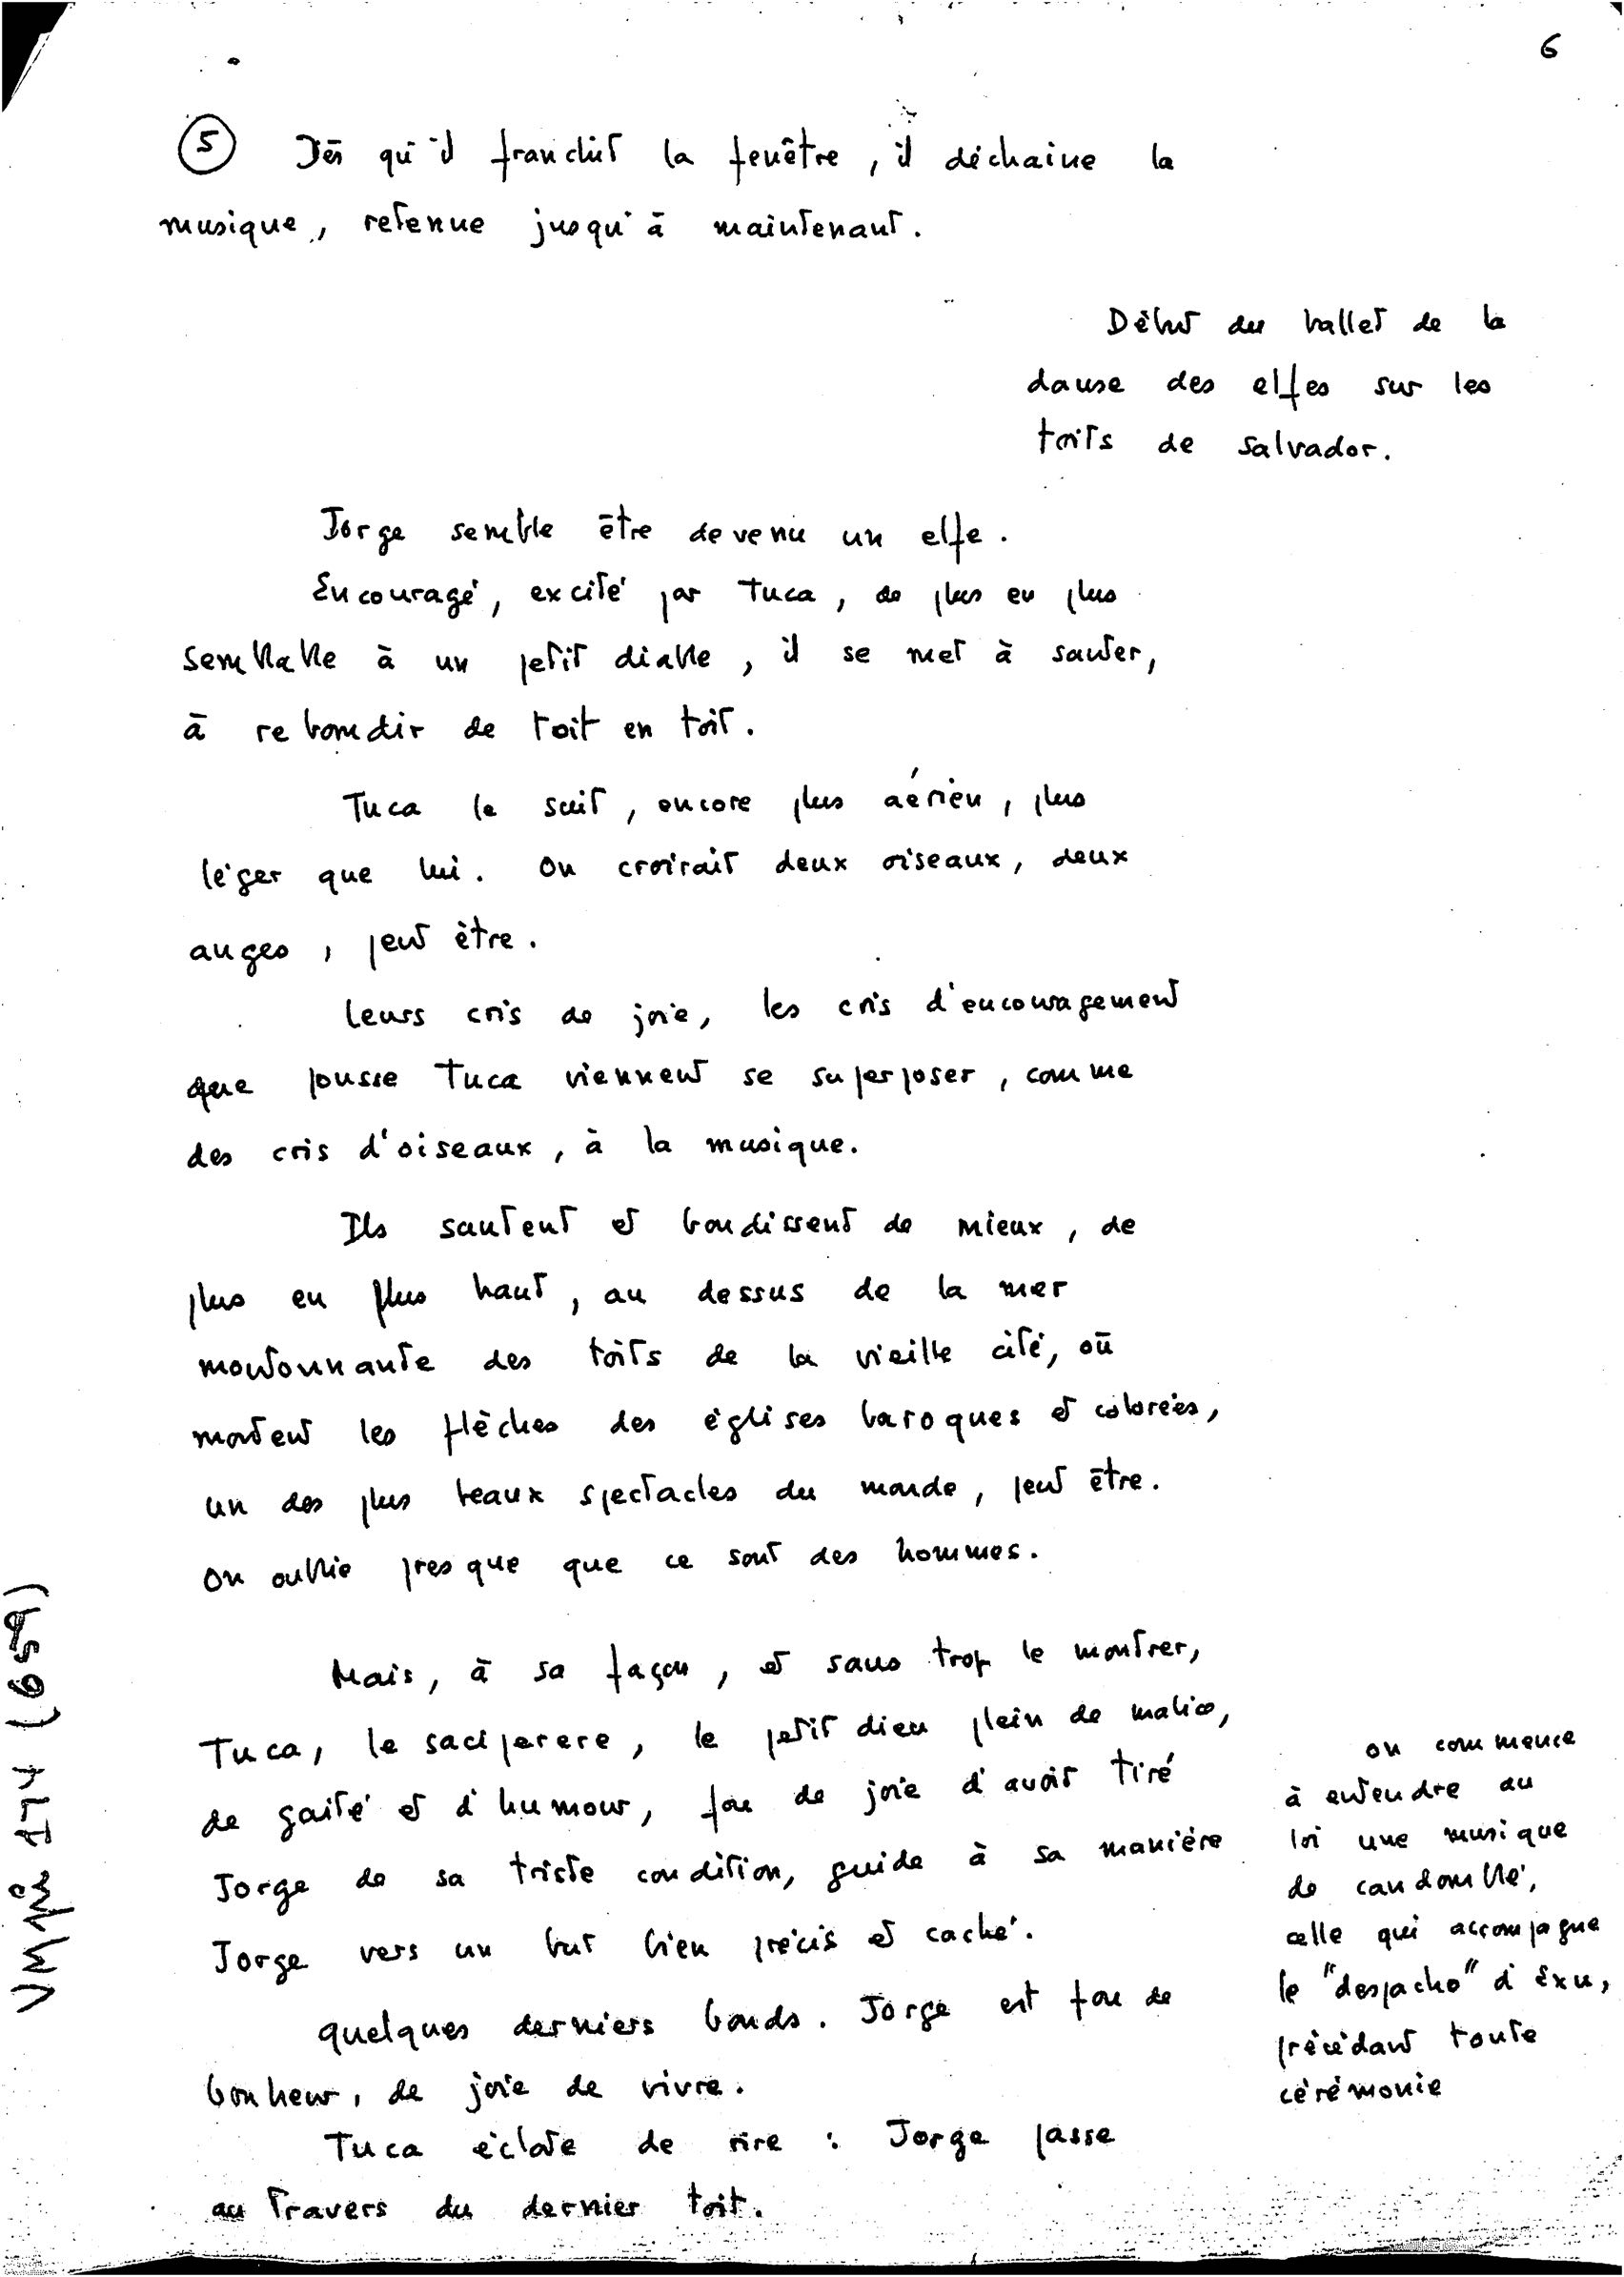 6
⑤ Dès qu'il franchit la fenêtre, il déchaine la
musique, retenue jusqu'à maintenant.
Début du ballet de la
danse des elfes sur les
toits de Salvador.
Jorge semble être devenu un elfe.
Encouragé, excité par Tuca, de plus en plus
semblable à un petit diable, il se met à sauter,
à rebondir de toit en toit.
Tuca le suit, encore plus aérien, plus
léger que lui. On croirait deux oiseaux, deux
anges, peut être.
Leurs cris de joie, les cris d'encouragement
que pousse Tuca viennent se superposer, comme
des cris d'oiseaux, à la musique.
Ils sautent et bondissent de mieux, de
plus en plus haut, au dessus de la mer
moutonnante des toits de la vieille cité, où
montent les flèches des églises baroques et colorées,
un des plus beaux spectacles du monde, peut être.
On oublie presque que ce sont des hommes.
Mais, à sa façon, et sans trop le montrer,
Tuca, le saci perere, le petit dieu plein de malice,
de gaité et d'humour, fou de joie d'avoir tiré
Jorge de sa triste condition, guide à sa manière
Jorge vers un but bien précis et caché.
quelques derniers bonds. Jorge est fou de
bonheur, de joie de vivre.
Tuca éclate de rire : Jorge passe
au travers du dernier toit.
on commence
à entendre au
loi une musique
de candomblé,
celle qui accompagne
le "despacho" d'Exu,
précédant toute
cérémonie